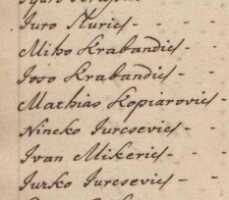 Juro Nurich - - - -
Miho Krabandich - -
Joso Krabandich - -
Mathias Kopiarovich -
Nincko Jurcsevich - -
Ivan Mikerich - - -
Jurko Jurcsevich - -